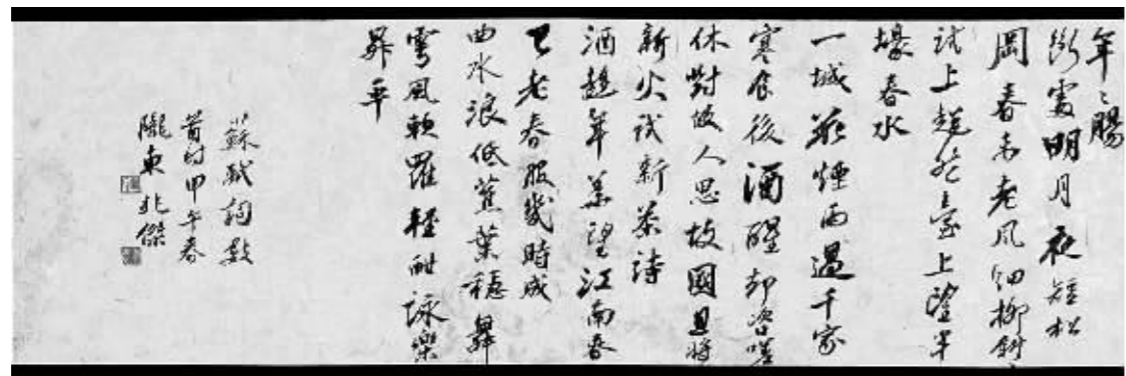 年〻腸
斷處明月夜短松
岡春未老風細柳斜〻
試上超然臺上望半
壕春水
一城花煙雨過千家
寒食後酒醒卻咨嗟
休對故人思故國且將
新火試新茶詩
酒趁年華望江南春
已老春服幾時成
曲水浪低蕉葉穩舞
雩風軟羅輕酣詠樂
昇平
蘇軾詞數
首時甲午春
隴東傑